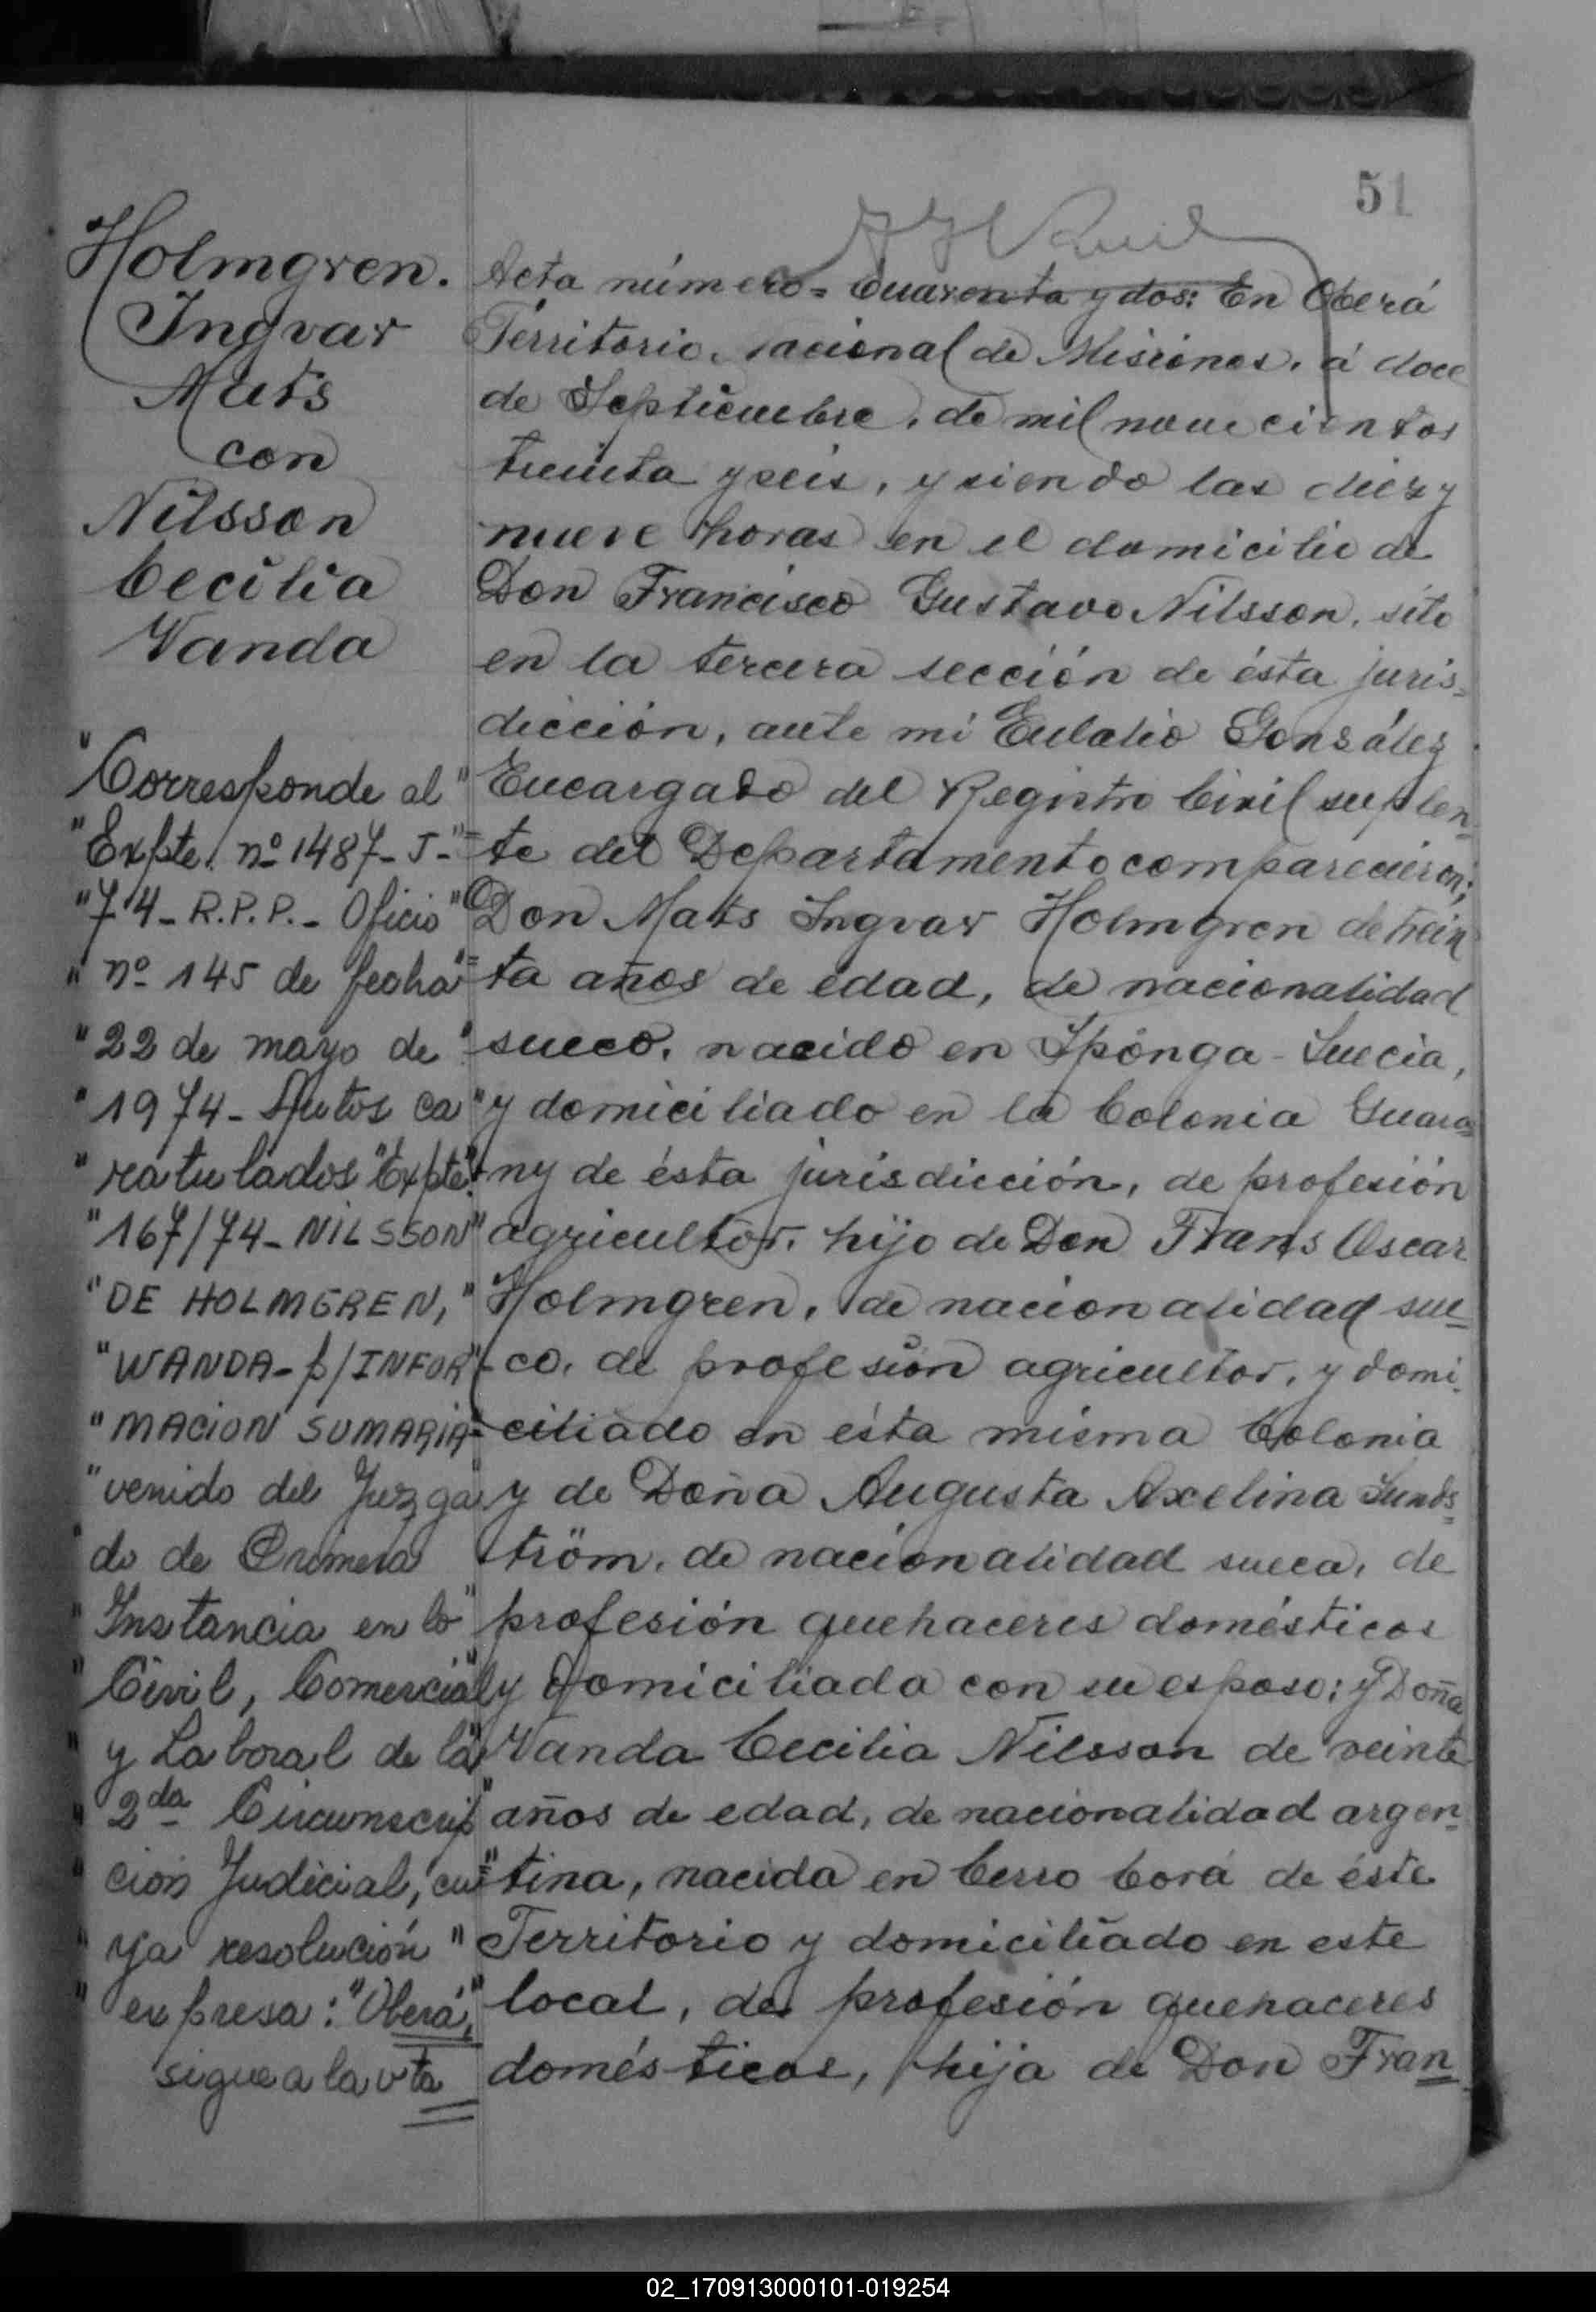 51
Holmgren.
Ingvar
Mats
con
Nilsson
Cecilia
Vanda
"Corresponde al"
"Expte. nº 1487-J-"=
"74-R.P.P.- Oficio"
"nº 145 de fecha"=
"22 de mayo de"
"1974- Autos ca"
"ratulados "Expte."
"167/74- NILSSON"
"DE HOLMGREN,"
"WANDA- p/INFOR"-
"MACION SUMARIA=
"venido del Juzga"
do de Primera
"Instancia en lo"
"Civil, Comercial"
"y Laboral de la"
"2da Circunscrip"
"ción Judicial, cu"=
"ya resolución"
"expresa: "Oberá,"
sigue a la vta
Acta número = Cuarenta y dos: En Oberá
Territorio nacional de Misiones, á doce
de Septiembre, de mil novecientos
treinta y seis, y siendo las diez y
nueve horas en el domicilio de
Don Francisco Gustavo Nilsson, sito
en la tercera sección de ésta juris=
dicción, ante mi Eulalio Gonsález
Encargado del Registro Civil suplen=
te del Departamento comparecieron;
Don Mats Ingvar Holmgren de trein
ta años de edad, de nacionalidad
sueco, nacido en Spönga - Suecia,
y domiciliado en la Colonia Guara=
ny de ésta jurisdicción, de profesión
agricultor, hijo de Don Frans Oscar
Holmgren, de nacionalidad sue=
co, de profesión agricultor, y domi
ciliado en ésta misma Colonia
y de Doña Augusta Axelina Sunds=
tröm, de nacionalidad sueca, de
profesión quehaceres domésticos
y domiciliada con su esposo; y Doña
Vanda Cecilia Nilsson de veinte
años de edad, de nacionalidad argen=
tina, nacida en Cerro Corá de éste
Territorio y domiciliado en este
local, de profesión quehaceres
domésticos, hija de Don Fran=
02_170913000101-019254